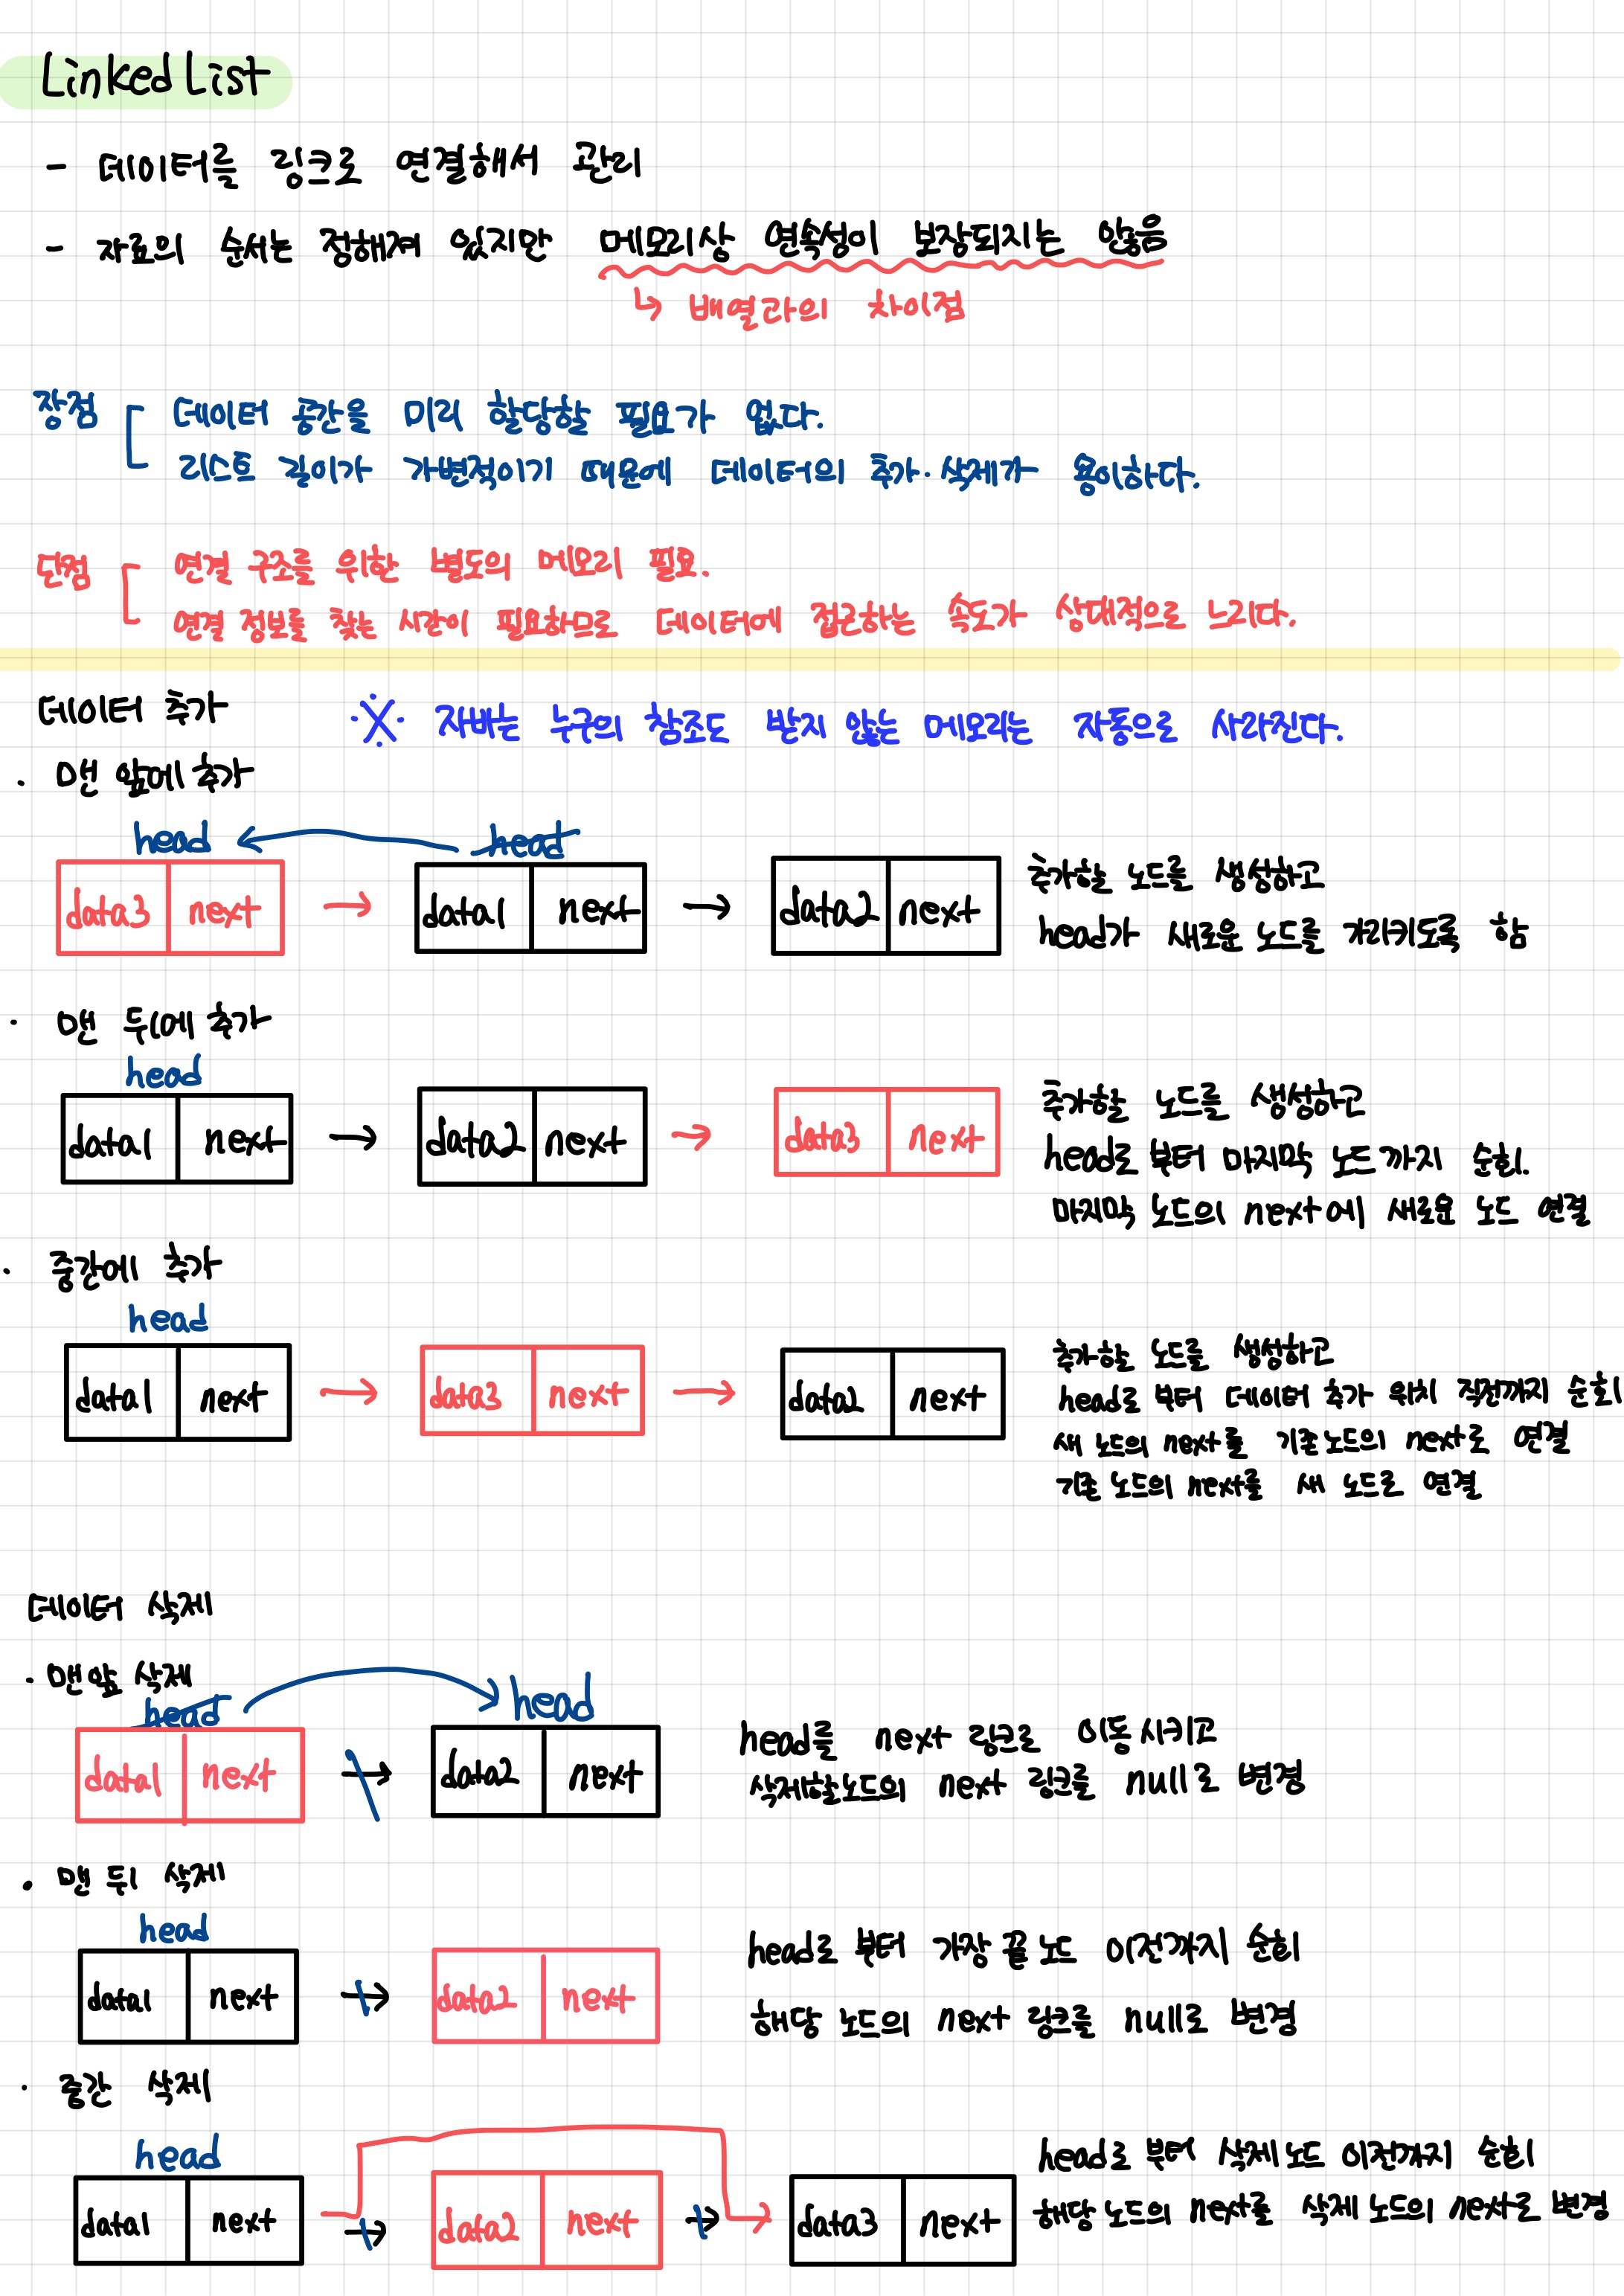 Linked List
- 데이터를 링크로 연결해서 관리
- 자료의 순서는 정해져 있지만 메모리상 연속성이 보장되지는 않음
↳ 배열과의 차이점
장점
데이터 공간을 미리 할당할 필요가 없다.
리스트 길이가 가변적이기 때문에 데이터의 추가·삭제가 용이하다.
단점
연결 구조를 위한 별도의 메모리 필요.
연결 정보를 찾는 시간이 필요하므로 데이터에 접근하는 속도가 상대적으로 느리다.
데이터 추가
※ 자바는 누구의 참조도 받지 않는 메모리는 자동으로 사라진다.
· 맨 앞에 추가
head ← head
data3 next → data1 next → data2 next
추가할 노드를 생성하고
head가 새로운 노드를 가리키도록 함
· 맨 뒤에 추가
head
data1 next → data2 next → data3 next
추가할 노드를 생성하고
head로 부터 마지막 노드 까지 순회.
마지막 노드의 next에 새로운 노드 연결
· 중간에 추가
head
data1 next → data3 next → data2 next
추가할 노드를 생성하고
head로 부터 데이터 추가 위치 직전까지 순회
새 노드의 next를 기존 노드의 next로 연결
기존 노드의 next를 새 노드로 연결
데이터 삭제
· 맨 앞 삭제
head → head
data1 next → data2 next
head를 next 링크로 이동 시키고
삭제할 노드의 next 링크를 null로 변경
· 맨 뒤 삭제
head
data1 next → data2 next
head로 부터 가장 끝 노드 이전까지 순회
해당 노드의 next 링크를 null로 변경
· 중간 삭제
head
data1 next → data2 next → data3 next
head로 부터 삭제 노드 이전까지 순회
해당 노드의 next를 삭제 노드의 next로 변경